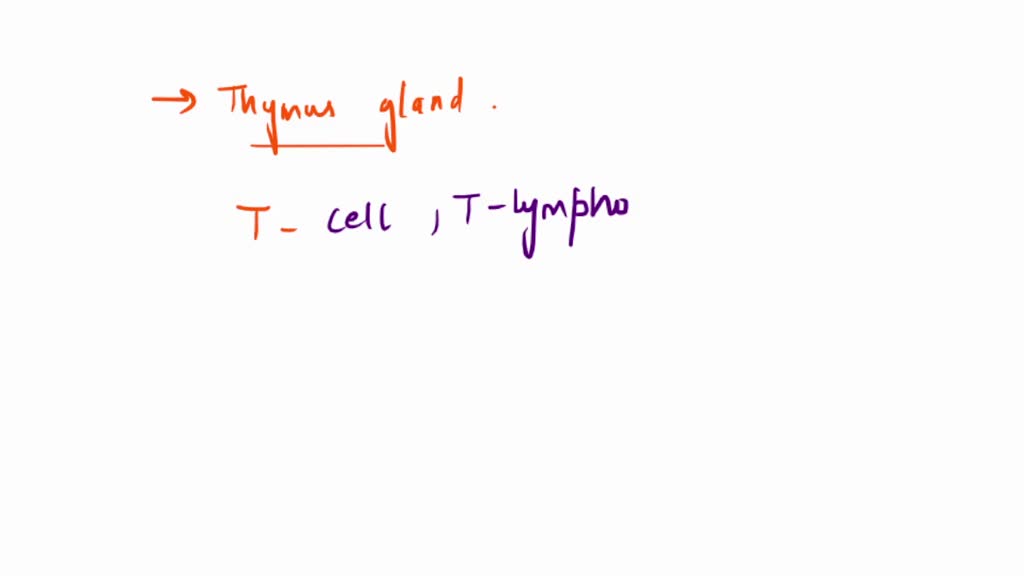 → Thymus gland .
T - cell , T-lympho